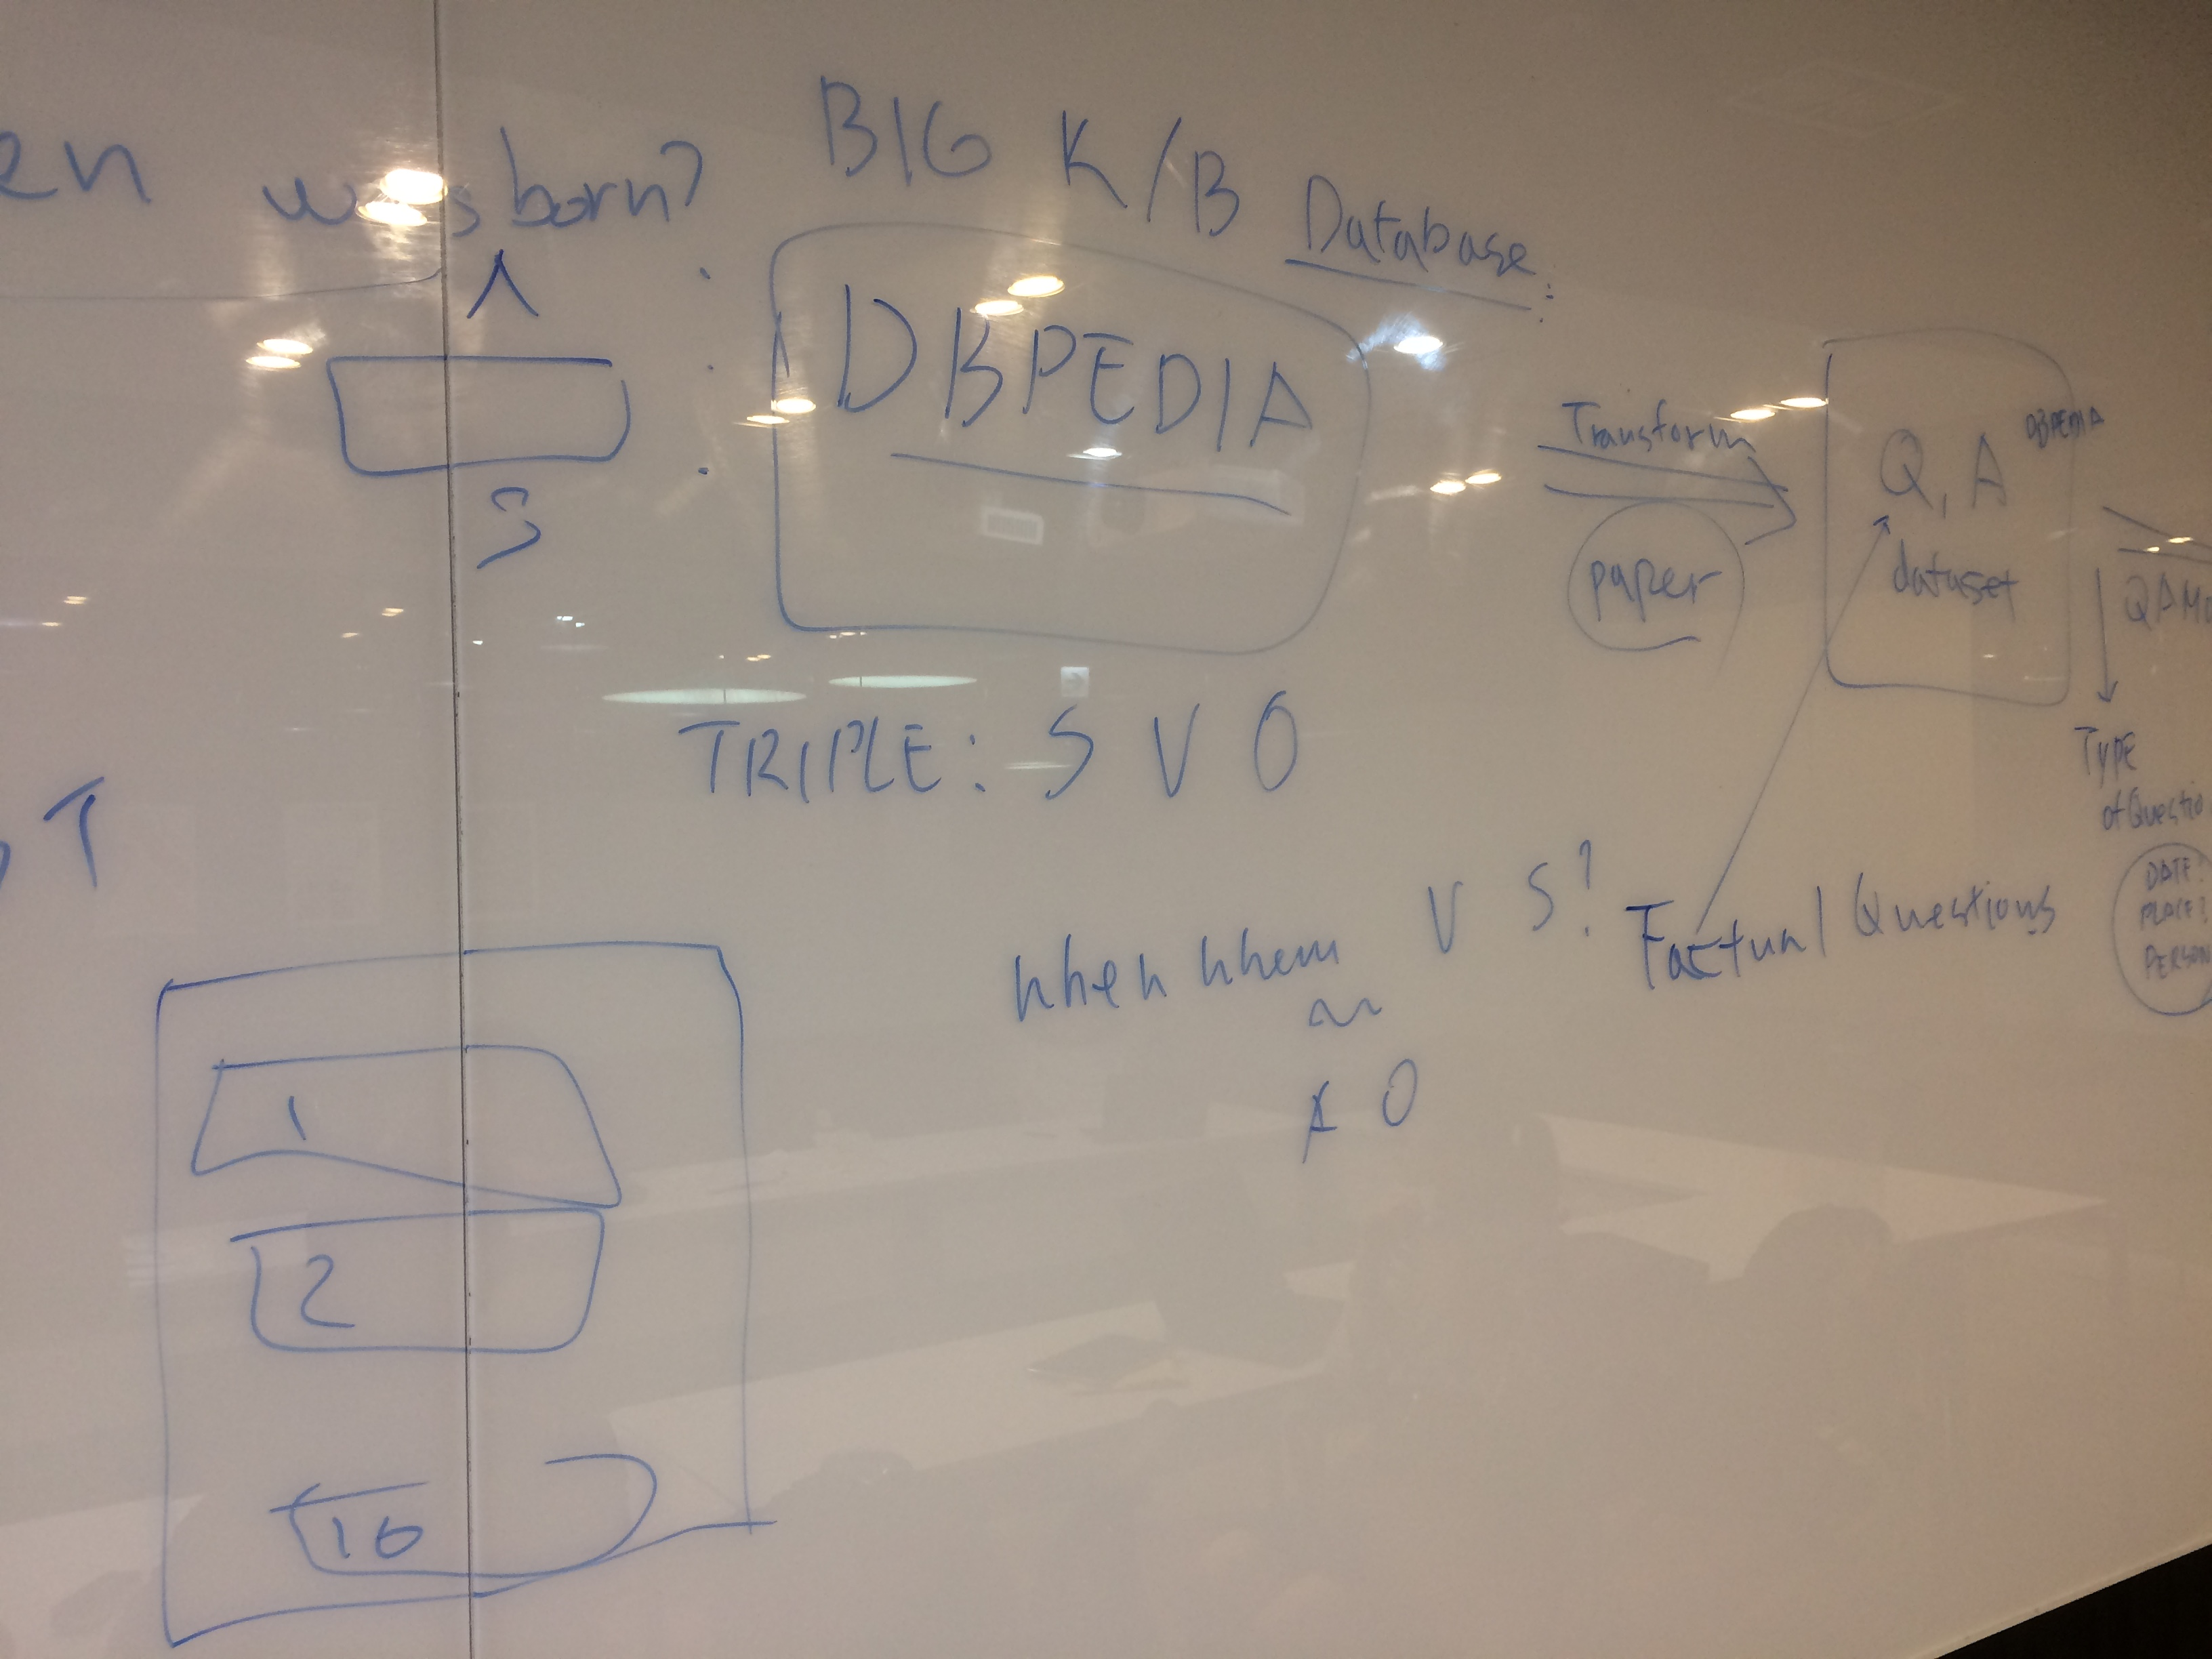 en was born?
BIG K/B Database:
DBPEDIA
S
Transform
paper
Q, A DBPEDIA
dataset
TYPE
of Questio
DATE?
PLACE?
PERSON
TRIPLE: S V O
T
when whem V S?
Factual Questions
O
1
2
10